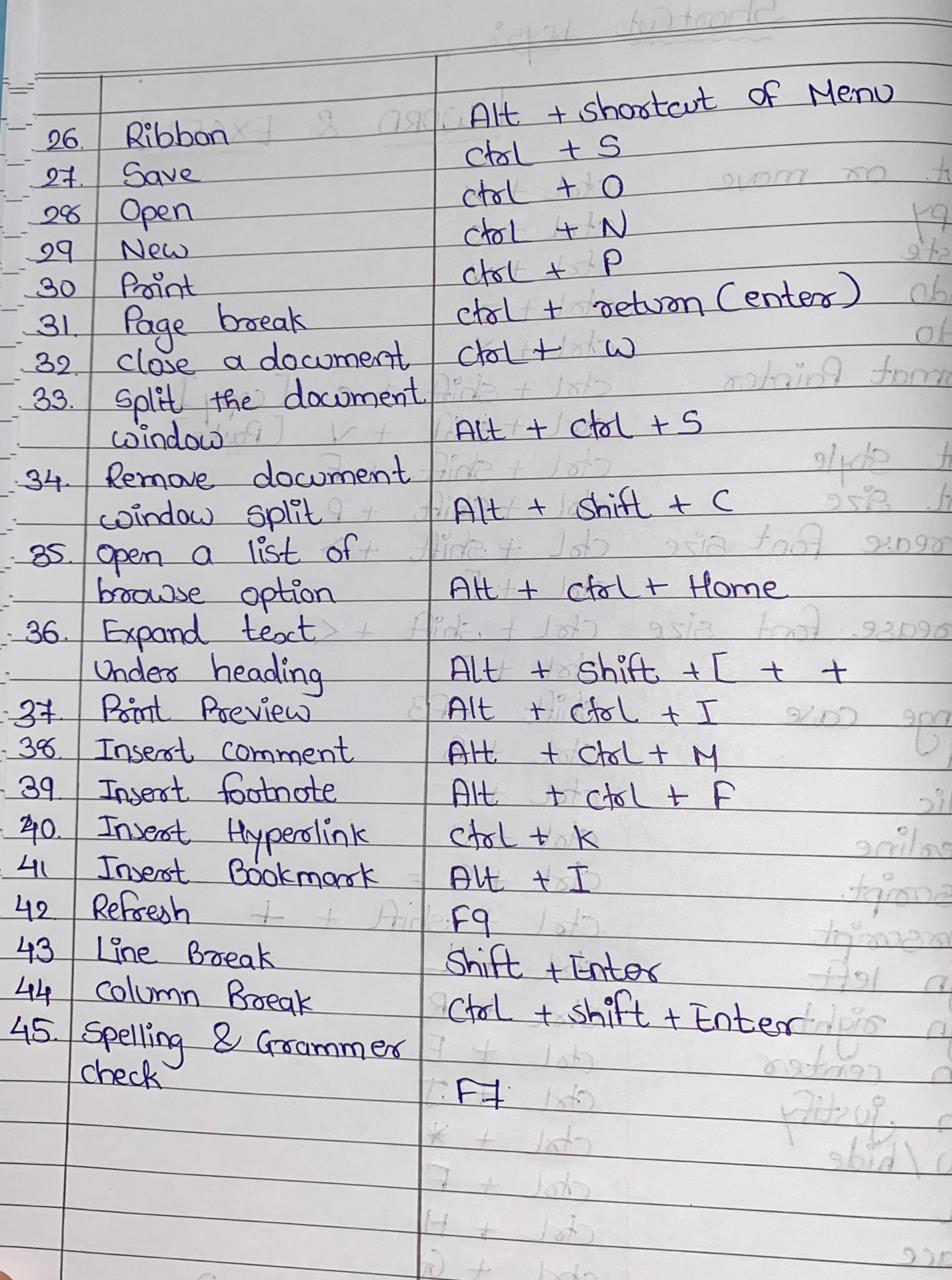 26. Ribbon Alt + shortcut of Menu
27. Save Ctrl + S
28 Open Ctrl + O
29 New Ctrl + N
30 Print Ctrl + P
31. Page break Ctrl + return (enter)
32. Close a document Ctrl + W
33. Split the document
window Alt + Ctrl + S
34. Remove document
window split Alt + Shift + C
35. Open a list of
browse option Alt + Ctrl + Home
36. Expand text
Under heading Alt + Shift + [ + +
37. Print Preview Alt + Ctrl + I
38. Insert comment Alt + Ctrl + M
39 Insert footnote Alt + Ctrl + F
40. Insert Hyperlink Ctrl + K
41 Insert Bookmark Alt + I
42 Refresh F9
43 Line Break Shift + Enter
44 Column Break Ctrl + Shift + Enter
45. Spelling & Grammer
check F7